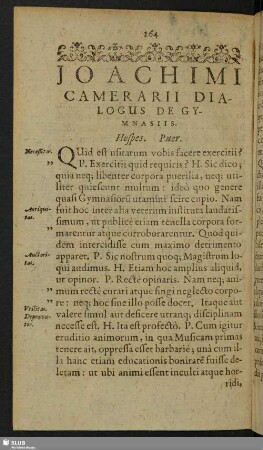 264
JOACHIMI
CAMERARII DIA-
LOGUS DE GY-
MNASIIS.
Hospes. Puer.
Necessitas.
QUid est usitatum vobis facere exercitii?
P. Exercitii quid requiris? H. Sic dico;
quia neq; libenter corpora puerilia, neq; uti-
liter quiescunt multum: ideò quo genere
quasi Gymnasiorũ utamini scire cupio. Nam
Antiqui-
tas.
fuit hoc inter alia veterum instituta laudatis-
simum, ut publicè etiam tenella corpora for-
marentur atque corroborarentur. Quod qui-
dem intercidisse cum maximo detrimento
Auctori-
tas.
apparet. P. Sic nostrum quoq; Magistrum lo-
qui audimus. H. Etiam hoc amplius aliquid,
ut opinor. P. Rectè opinaris. Nam neq; ani-
mum rectè curari atque fingi neglecto corpo-
re: neq; hoc sine illo posse docet. Itaque aut
Utilitas.
valere simul aut desicere utranq; disciplinam
necesse est. H. Ita est profectò. P. Cum igitur
eruditio animorum, in qua Musicam primas
tenere ait, oppressa esset barbarie; unà cum il-
la hanc etiam educationis bonitatẽ fuisse de-
letam: ut ubi animi essent inculti atque hor-
ridi,
SLUB